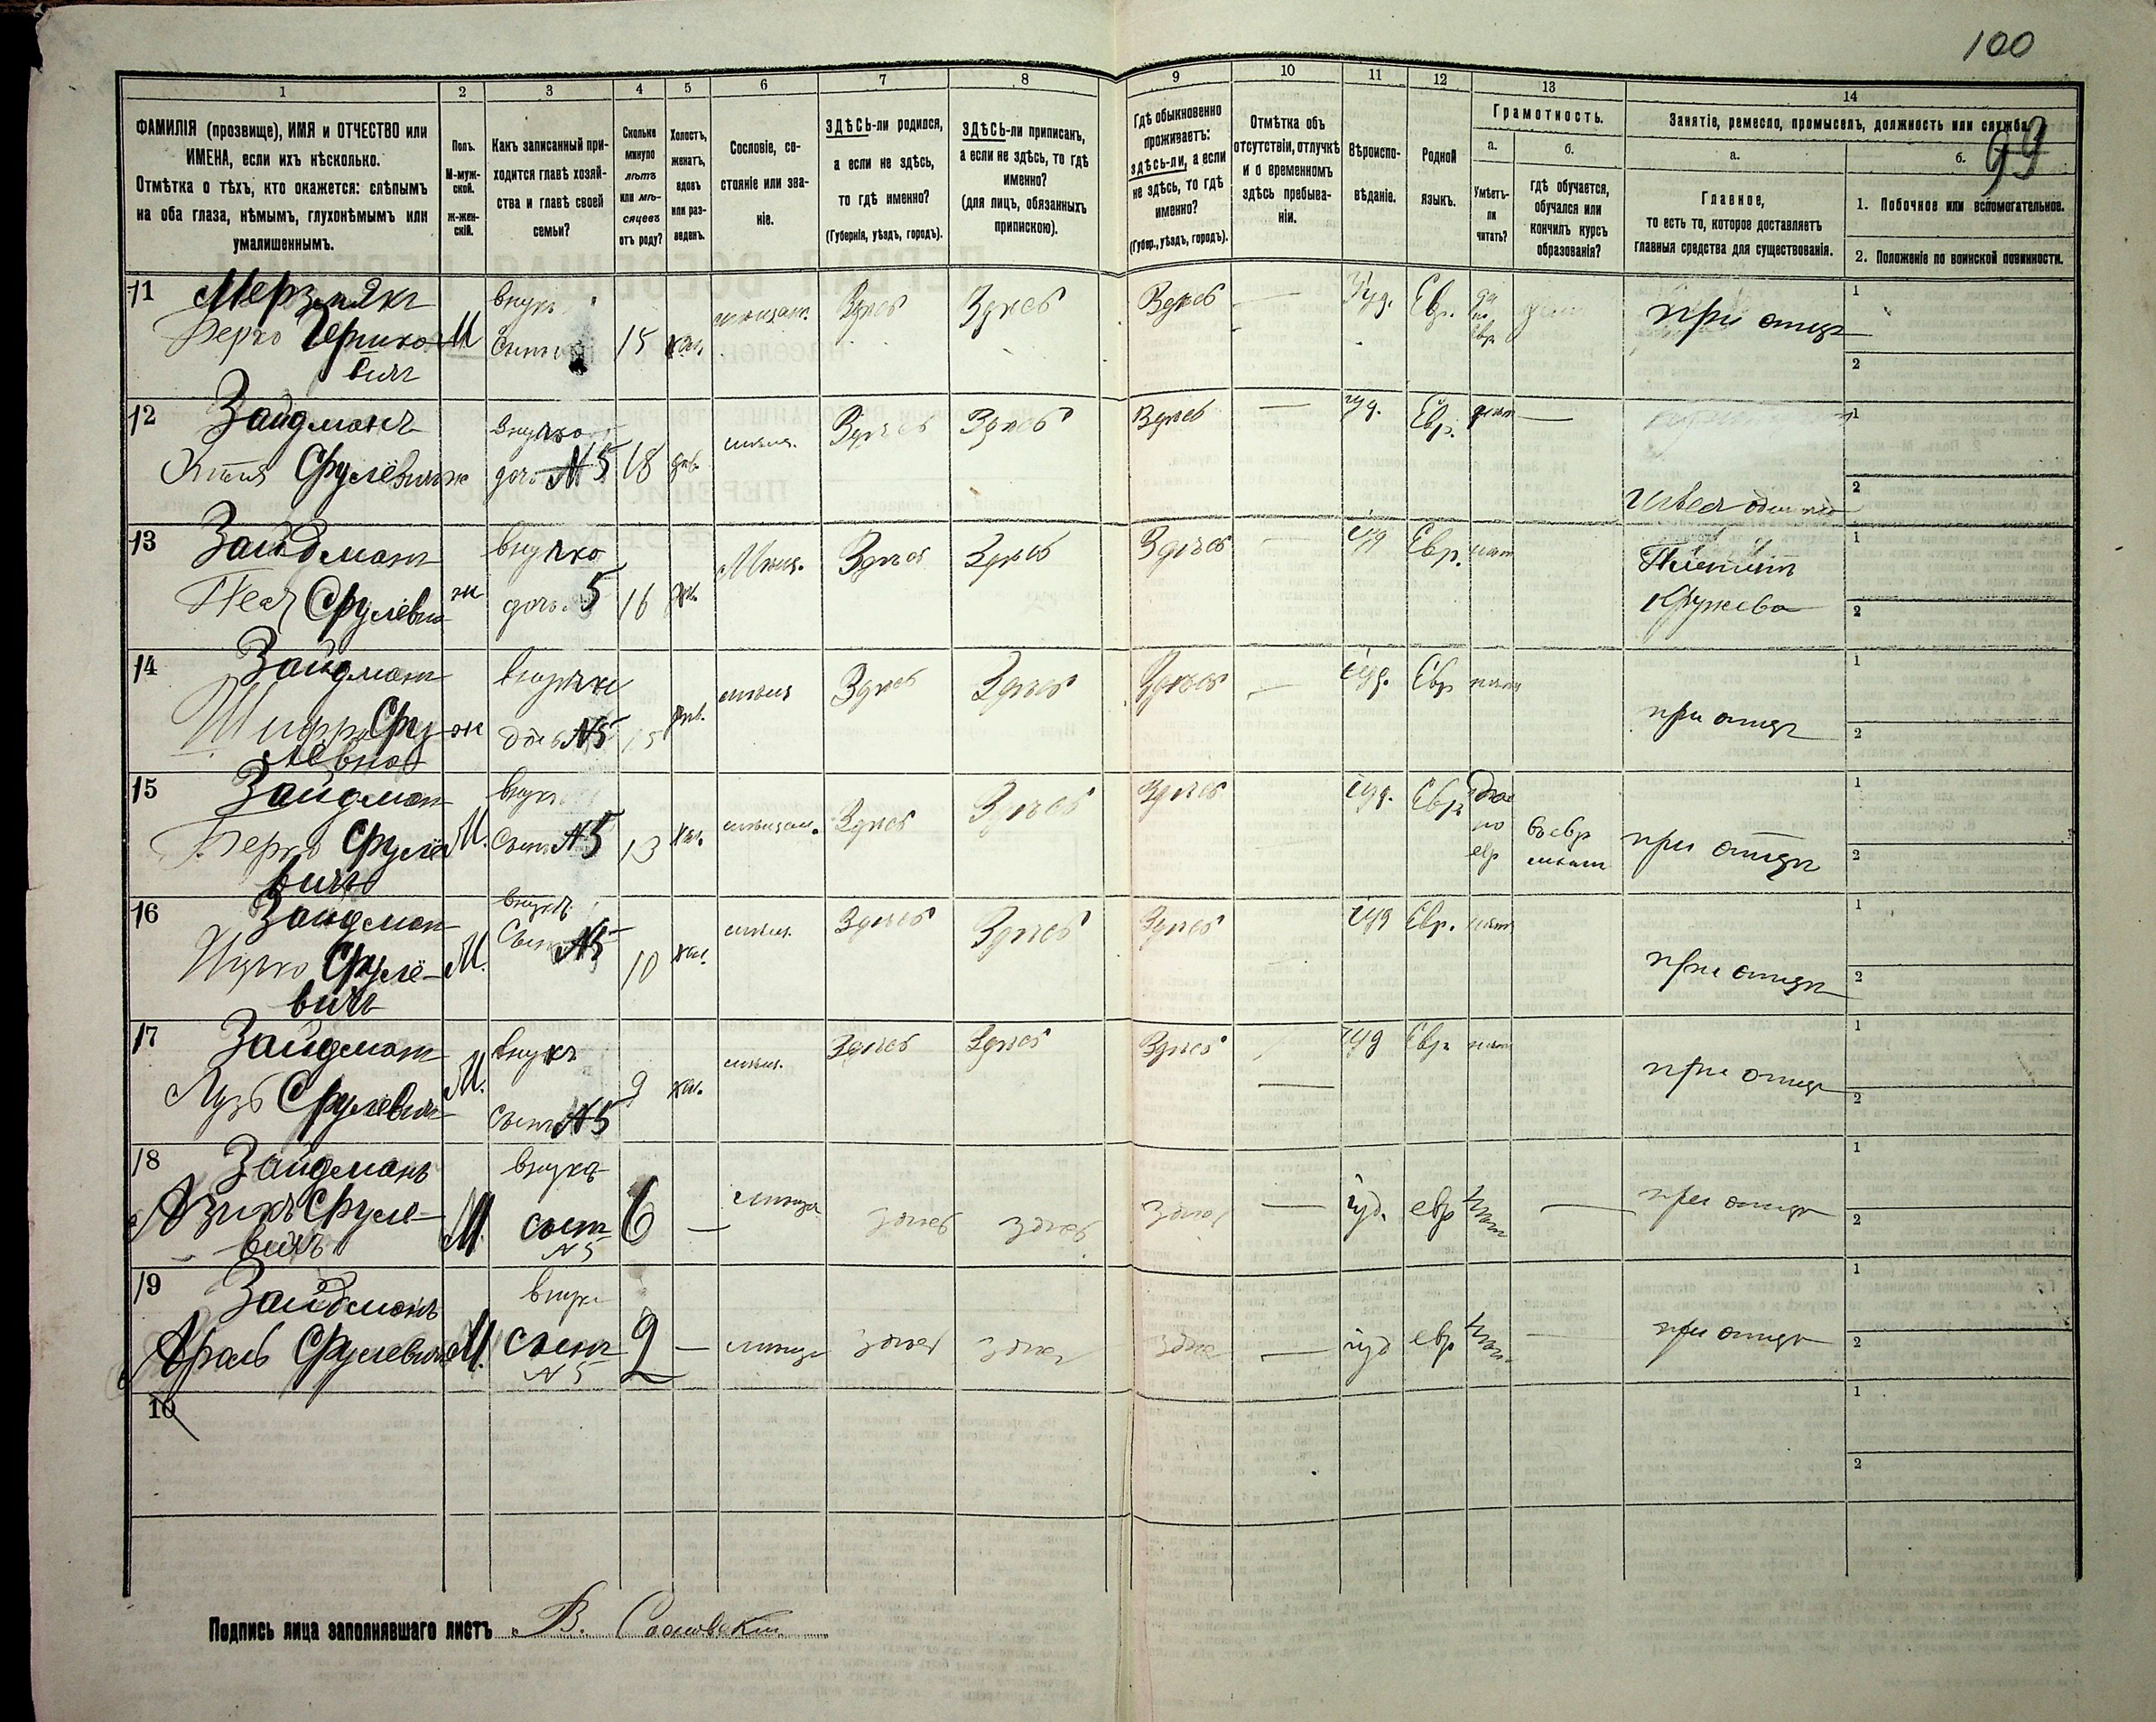 100
99
1
2
3
4
5
6
7
8
9
10
11
12
13
14
ФАМИЛІЯ (прозвище), ИМЯ и ОТЧЕСТВО или
ИМЕНА, если ихъ нѣсколько.
Отмѣтка о тѣхъ, кто окажется: слѣпымъ
на оба глаза, нѣмымъ, глухонѣмымъ или
умалишеннымъ.
Полъ.
М-муж-
ской.
Ж-жен-
скій.
Какъ записанный при-
ходится главѣ хозяй-
ства и главѣ своей
семьи?
Сколько
минуло
лѣтъ
или мѣ-
сяцевъ
отъ роду?
Холостъ,
женатъ,
вдовъ
или раз-
веденъ.
Сословіе, со-
стояніе или зва-
ніе.
ЗДѢСЬ-ли родился,
а если не здѣсь,
то гдѣ именно?
(Губернія, уѣздъ, городъ).
ЗДѢСЬ-ли приписанъ,
а если не здѣсь, то гдѣ
именно?
(для лицъ, обязанныхъ
припискою).
Гдѣ обыкновенно
проживаетъ:
здѣсь-ли, а если
не здѣсь, то гдѣ
именно?
(Губер., уѣздъ, городъ).
Отмѣтка объ
отсутствіи, отлучкѣ
и о временномъ
здѣсь пребыва-
ніи.
Вѣроиспо-
вѣданіе.
Родной
языкъ.
Грамотность.
а.
Умѣетъ-
ли
читать?
б.
гдѣ обучается,
обучался или
кончилъ курсъ
образованія?
Занятіе, ремесло, промыселъ, должность или служба.
а.
Главное,
то есть то, которое доставляетъ
главныя средства для существованія.
б.
1. Побочное или вспомогательное.
2. Положеніе по воинской повинности.
11
Берко
вичъ
М
внукъ
15
хол.
Здѣсь
Здѣсь
Здѣсь
Іуд.
Евр.
да
по
евр
при отцѣ
1
2
12
Зайдманъ
ж
внучка
дочь №5
18
дѣв.
мѣщ.
Здѣсь
Здѣсь
Здѣсь
іуд.
Евр.
нѣтъ
1
2
13
Зайдманъ
Песя Срулевна
ж
внучка
дочь 5
16
дѣв.
Мѣщ.
Здѣсь
Здѣсь
Здѣсь
іуд
Евр.
нѣтъ
Кружева
1
2
14
Зайдманъ
Шифра Сру
левна
ж
внучка
дочь №5
15
дѣв.
мѣщ
Здѣсь
Здѣсь
Здѣсь
іуд.
Евр
нѣтъ
при отцѣ
1
2
15
Зайдман
Берко Сруле
вичъ
М.
внукъ
Сынъ №5
13
хол.
мѣщан.
Здѣсь
Здѣсь
Здѣсь
іуд.
Евр.
да
по
евр
въ евр
при отцѣ
1
2
16
Зайдман
Ицко Сруле-
вичъ
М.
внукъ
Сынъ №5
10
хол.
мѣщ.
Здѣсь
Здѣсь
Здѣсь
іуд
Евр.
нѣтъ
при отцѣ
1
2
17
Зайдман
Лузь Срулевич
М.
внукъ
Сынъ №5
9
хол.
мѣщ.
Здѣсь
Здѣсь
Здѣсь
іуд
Евр
нѣтъ
при отцѣ
1
2
18
Зайдманъ
Азикъ Сруле-
вичъ
М.
внукъ
сынъ
№5
6
—
мѣща
здѣсь
здѣсь
здѣсь
—
іуд.
евр
нѣтъ
—
при отцѣ
1
2
19
Зайдманъ
Аронъ Срулевичъ
М.
внукъ
Сынъ
№5
2
—
мѣща
здѣсь
здѣсь
здѣсь
—
іуд
евр
нѣтъ
—
при отцѣ
1
2
10
1
2
Подпись лица заполнявшаго листъ В.